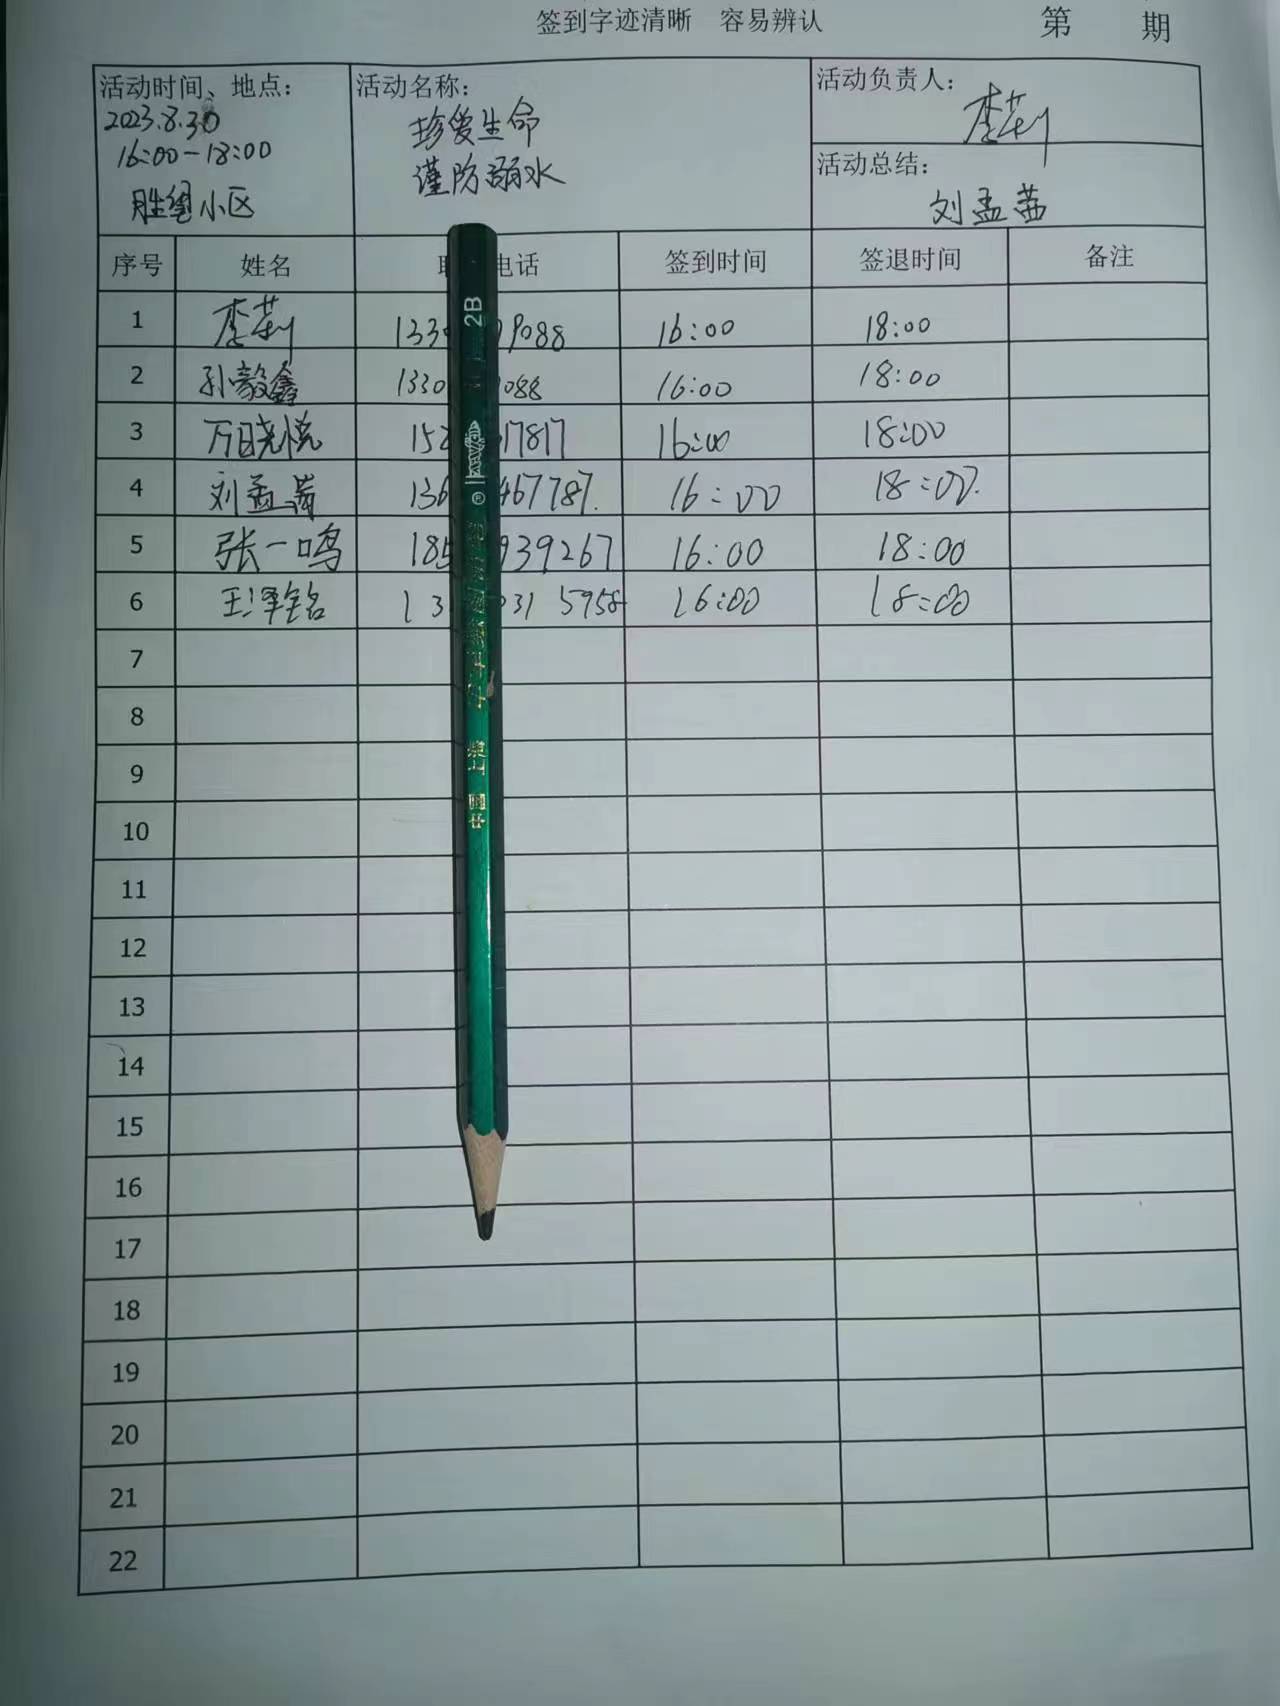 签到字迹清晰 容易辨认
第 期
活动时间、地点：
2023.8.30
16:00-18:00
小区
活动名称：
珍爱生命
谨防溺水
活动负责人：
李莉
活动总结：
刘孟茜
序号 姓名 电话 签到时间 签退时间 备注
1 李莉 133 9088 16:00 18:00
2 孙毅鑫 1330 088 16:00 18:00
3 万晓悦 152 17817 16:00 18:00
4 刘孟茜 136 467787. 16:00 18:00.
5 张一鸣 185 939267 16:00 18:00
6 王泽铭 13 31 5958 16:00 18:00
7
8
9
10
11
12
13
14
15
16
17
18
19
20
21
22
2B
®